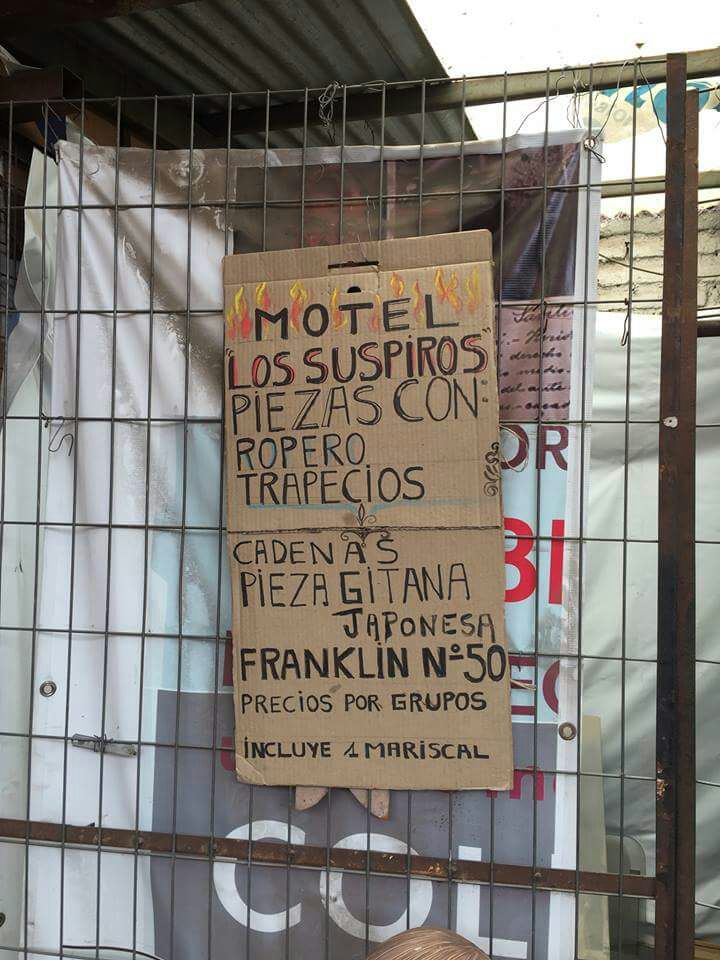 MOTEL
"LOS SUSPIROS"
PIEZAS CON:
ROPERO
TRAPECIOS
CADENAS
PIEZA GITANA
JAPONESA
FRANKLIN Nº50
PRECIOS POR GRUPOS
INCLUYE 1 MARISCAL
derecho
medio.
OR
BI
EC
COL